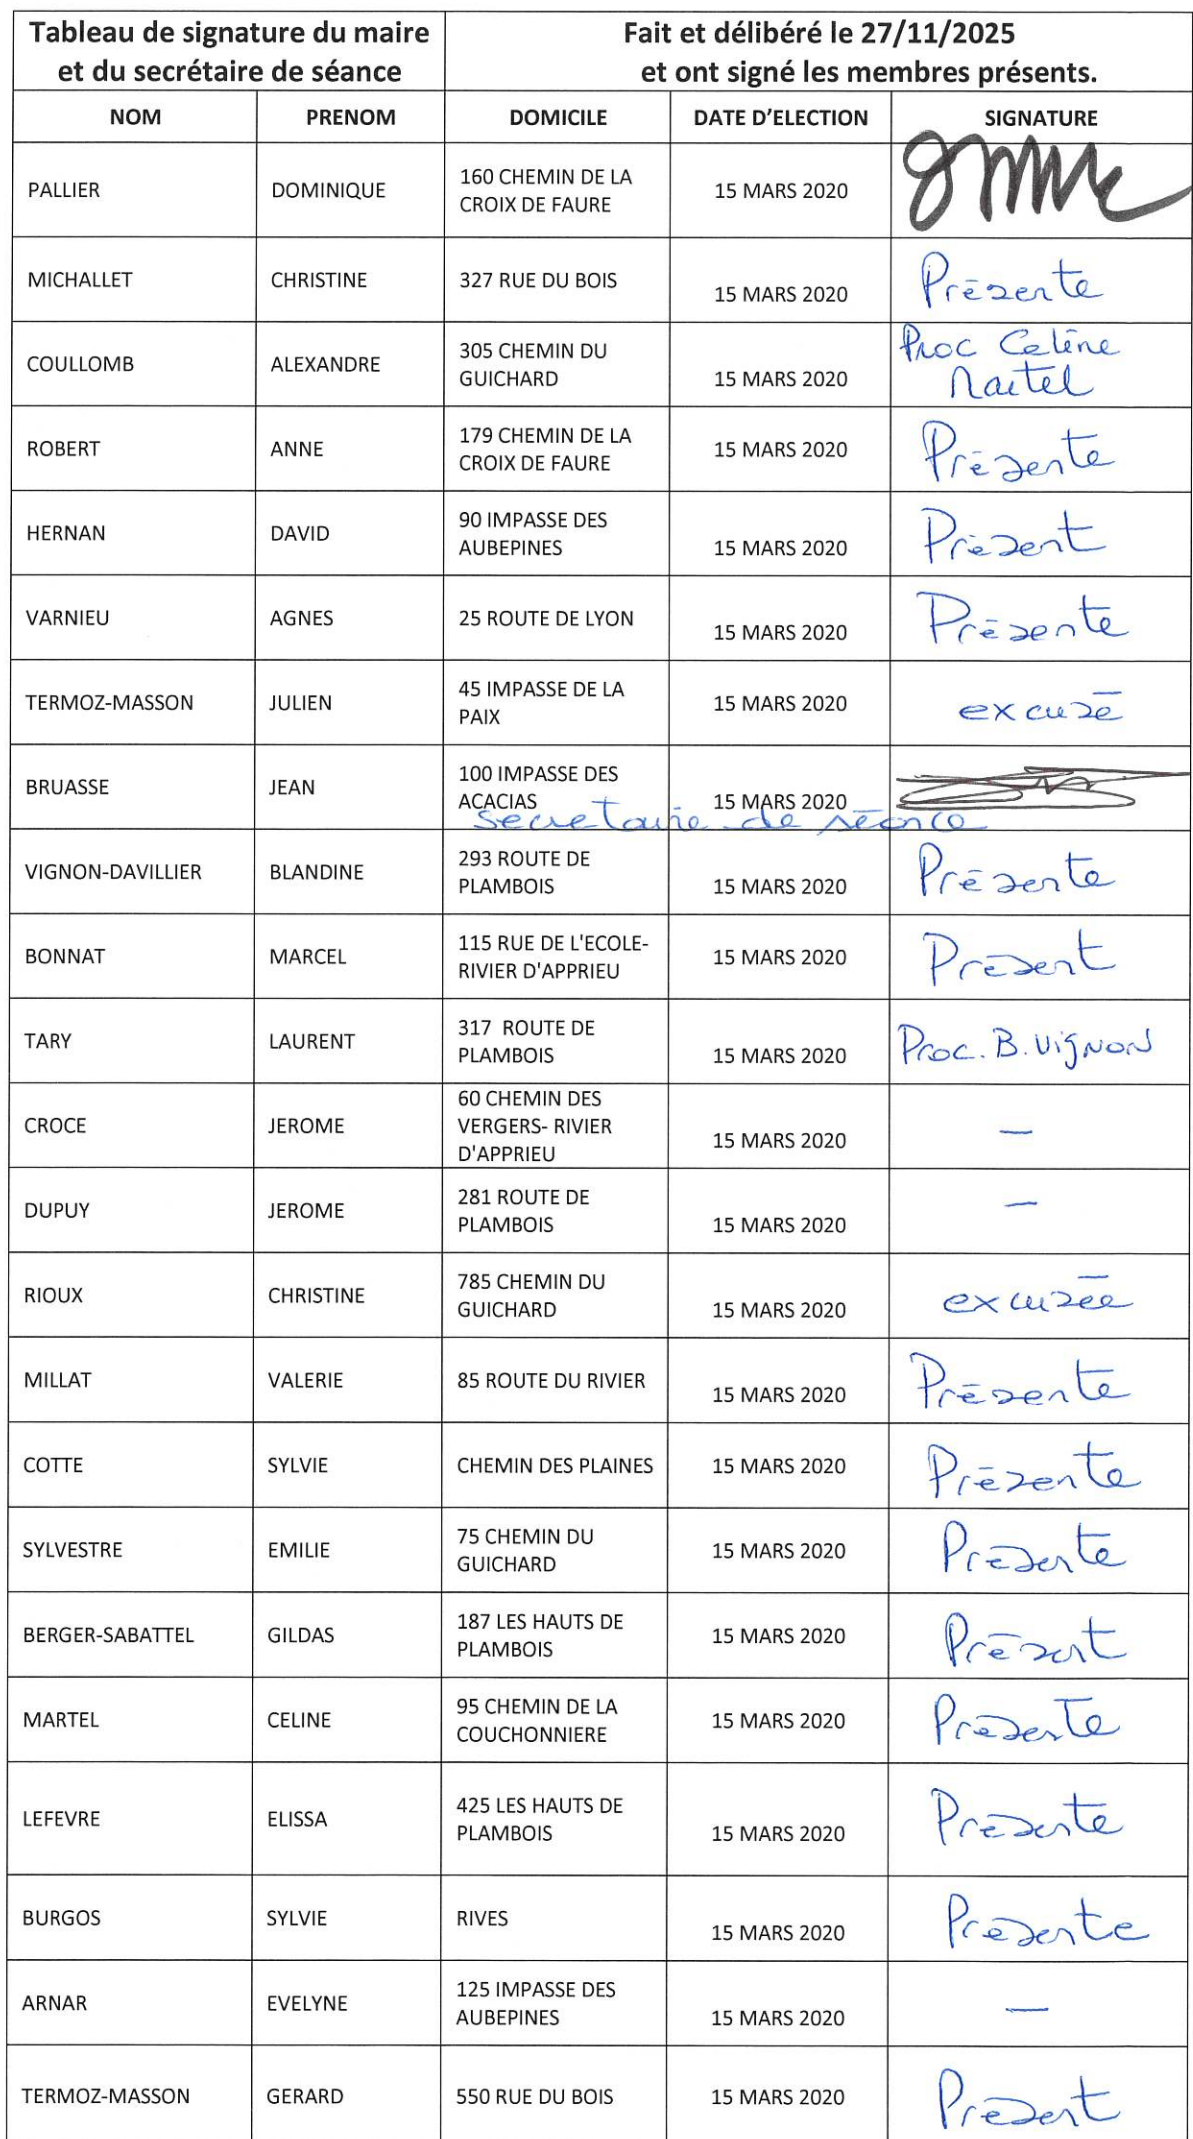 Tableau de signature du maire
et du secrétaire de séance
Fait et délibéré le 27/11/2025
et ont signé les membres présents.
NOM PRENOM DOMICILE DATE D'ELECTION SIGNATURE
PALLIER DOMINIQUE 160 CHEMIN DE LA
CROIX DE FAURE 15 MARS 2020
MICHALLET CHRISTINE 327 RUE DU BOIS 15 MARS 2020 Présente
COULLOMB ALEXANDRE 305 CHEMIN DU
GUICHARD 15 MARS 2020 Proc Céline
Martel
ROBERT ANNE 179 CHEMIN DE LA
CROIX DE FAURE 15 MARS 2020 Présente
HERNAN DAVID 90 IMPASSE DES
AUBEPINES 15 MARS 2020 Présent
VARNIEU AGNES 25 ROUTE DE LYON 15 MARS 2020 Présente
TERMOZ-MASSON JULIEN 45 IMPASSE DE LA
PAIX 15 MARS 2020 excusé
BRUASSE JEAN 100 IMPASSE DES
ACACIAS 15 MARS 2020
secretaire de séance
VIGNON-DAVILLIER BLANDINE 293 ROUTE DE
PLAMBOIS 15 MARS 2020 Présente
BONNAT MARCEL 115 RUE DE L'ECOLE-
RIVIER D'APPRIEU 15 MARS 2020 Présent
TARY LAURENT 317 ROUTE DE
PLAMBOIS 15 MARS 2020 Proc. B. Vignon
CROCE JEROME 60 CHEMIN DES
VERGERS- RIVIER
D'APPRIEU 15 MARS 2020 —
DUPUY JEROME 281 ROUTE DE
PLAMBOIS 15 MARS 2020 —
RIOUX CHRISTINE 785 CHEMIN DU
GUICHARD 15 MARS 2020 excusée
MILLAT VALERIE 85 ROUTE DU RIVIER 15 MARS 2020 Présente
COTTE SYLVIE CHEMIN DES PLAINES 15 MARS 2020 Présente
SYLVESTRE EMILIE 75 CHEMIN DU
GUICHARD 15 MARS 2020 Présente
BERGER-SABATTEL GILDAS 187 LES HAUTS DE
PLAMBOIS 15 MARS 2020 Présent
MARTEL CELINE 95 CHEMIN DE LA
COUCHONNIERE 15 MARS 2020 Présente
LEFEVRE ELISSA 425 LES HAUTS DE
PLAMBOIS 15 MARS 2020 Présente
BURGOS SYLVIE RIVES 15 MARS 2020 Présente
ARNAR EVELYNE 125 IMPASSE DES
AUBEPINES 15 MARS 2020 —
TERMOZ-MASSON GERARD 550 RUE DU BOIS 15 MARS 2020 Présent